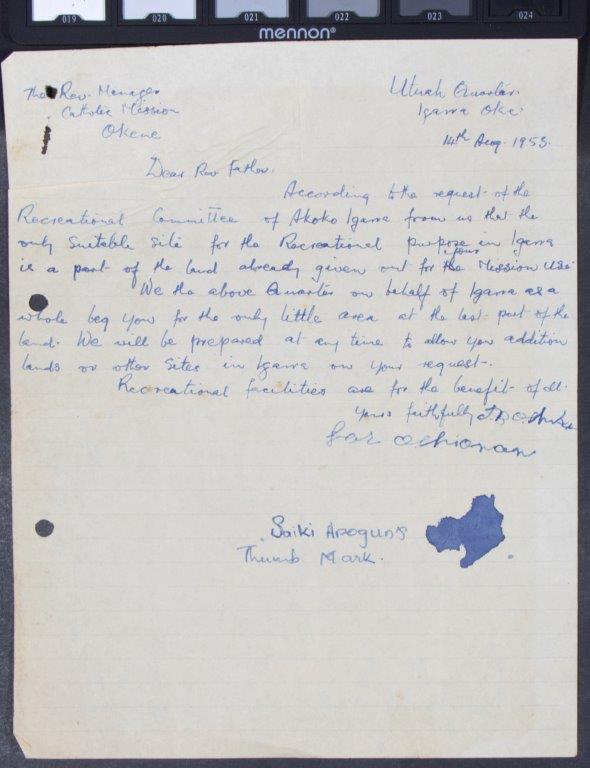 019 020 021 022 023 024
mennon®
The Rev. Manager
Catholic Mission
Okene
Utuah Quarter
Igarra Oke
14th Aug. 1953.
Dear Rev Father.
According to the request of the
Recreational Committee of Akoko Igarra from us that the
only suitable site for the Recreational purpose in Igarra
is a part of the land already given out for the your Mission use.
We the above Quarter on behalf of Igarra as a
whole beg you for the only little area at the last part of the
land. We will be prepared at any time to allow you addition
lands or other sites in Igarra on your request.
Recreational facilities are for the benefit of all.
Yours faithfully
for
Saiki Arogun's
Thumb Mark.